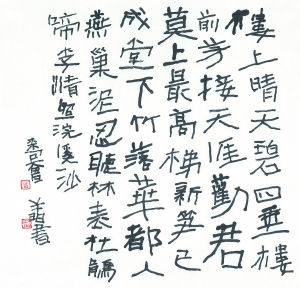 樓上晴天碧四垂樓
前芳接天涯勸君
莫上最高梯新笋已
成堂下竹落華都入
燕巢泥忍聽林表杜鵑
啼李清照浣溪沙
書